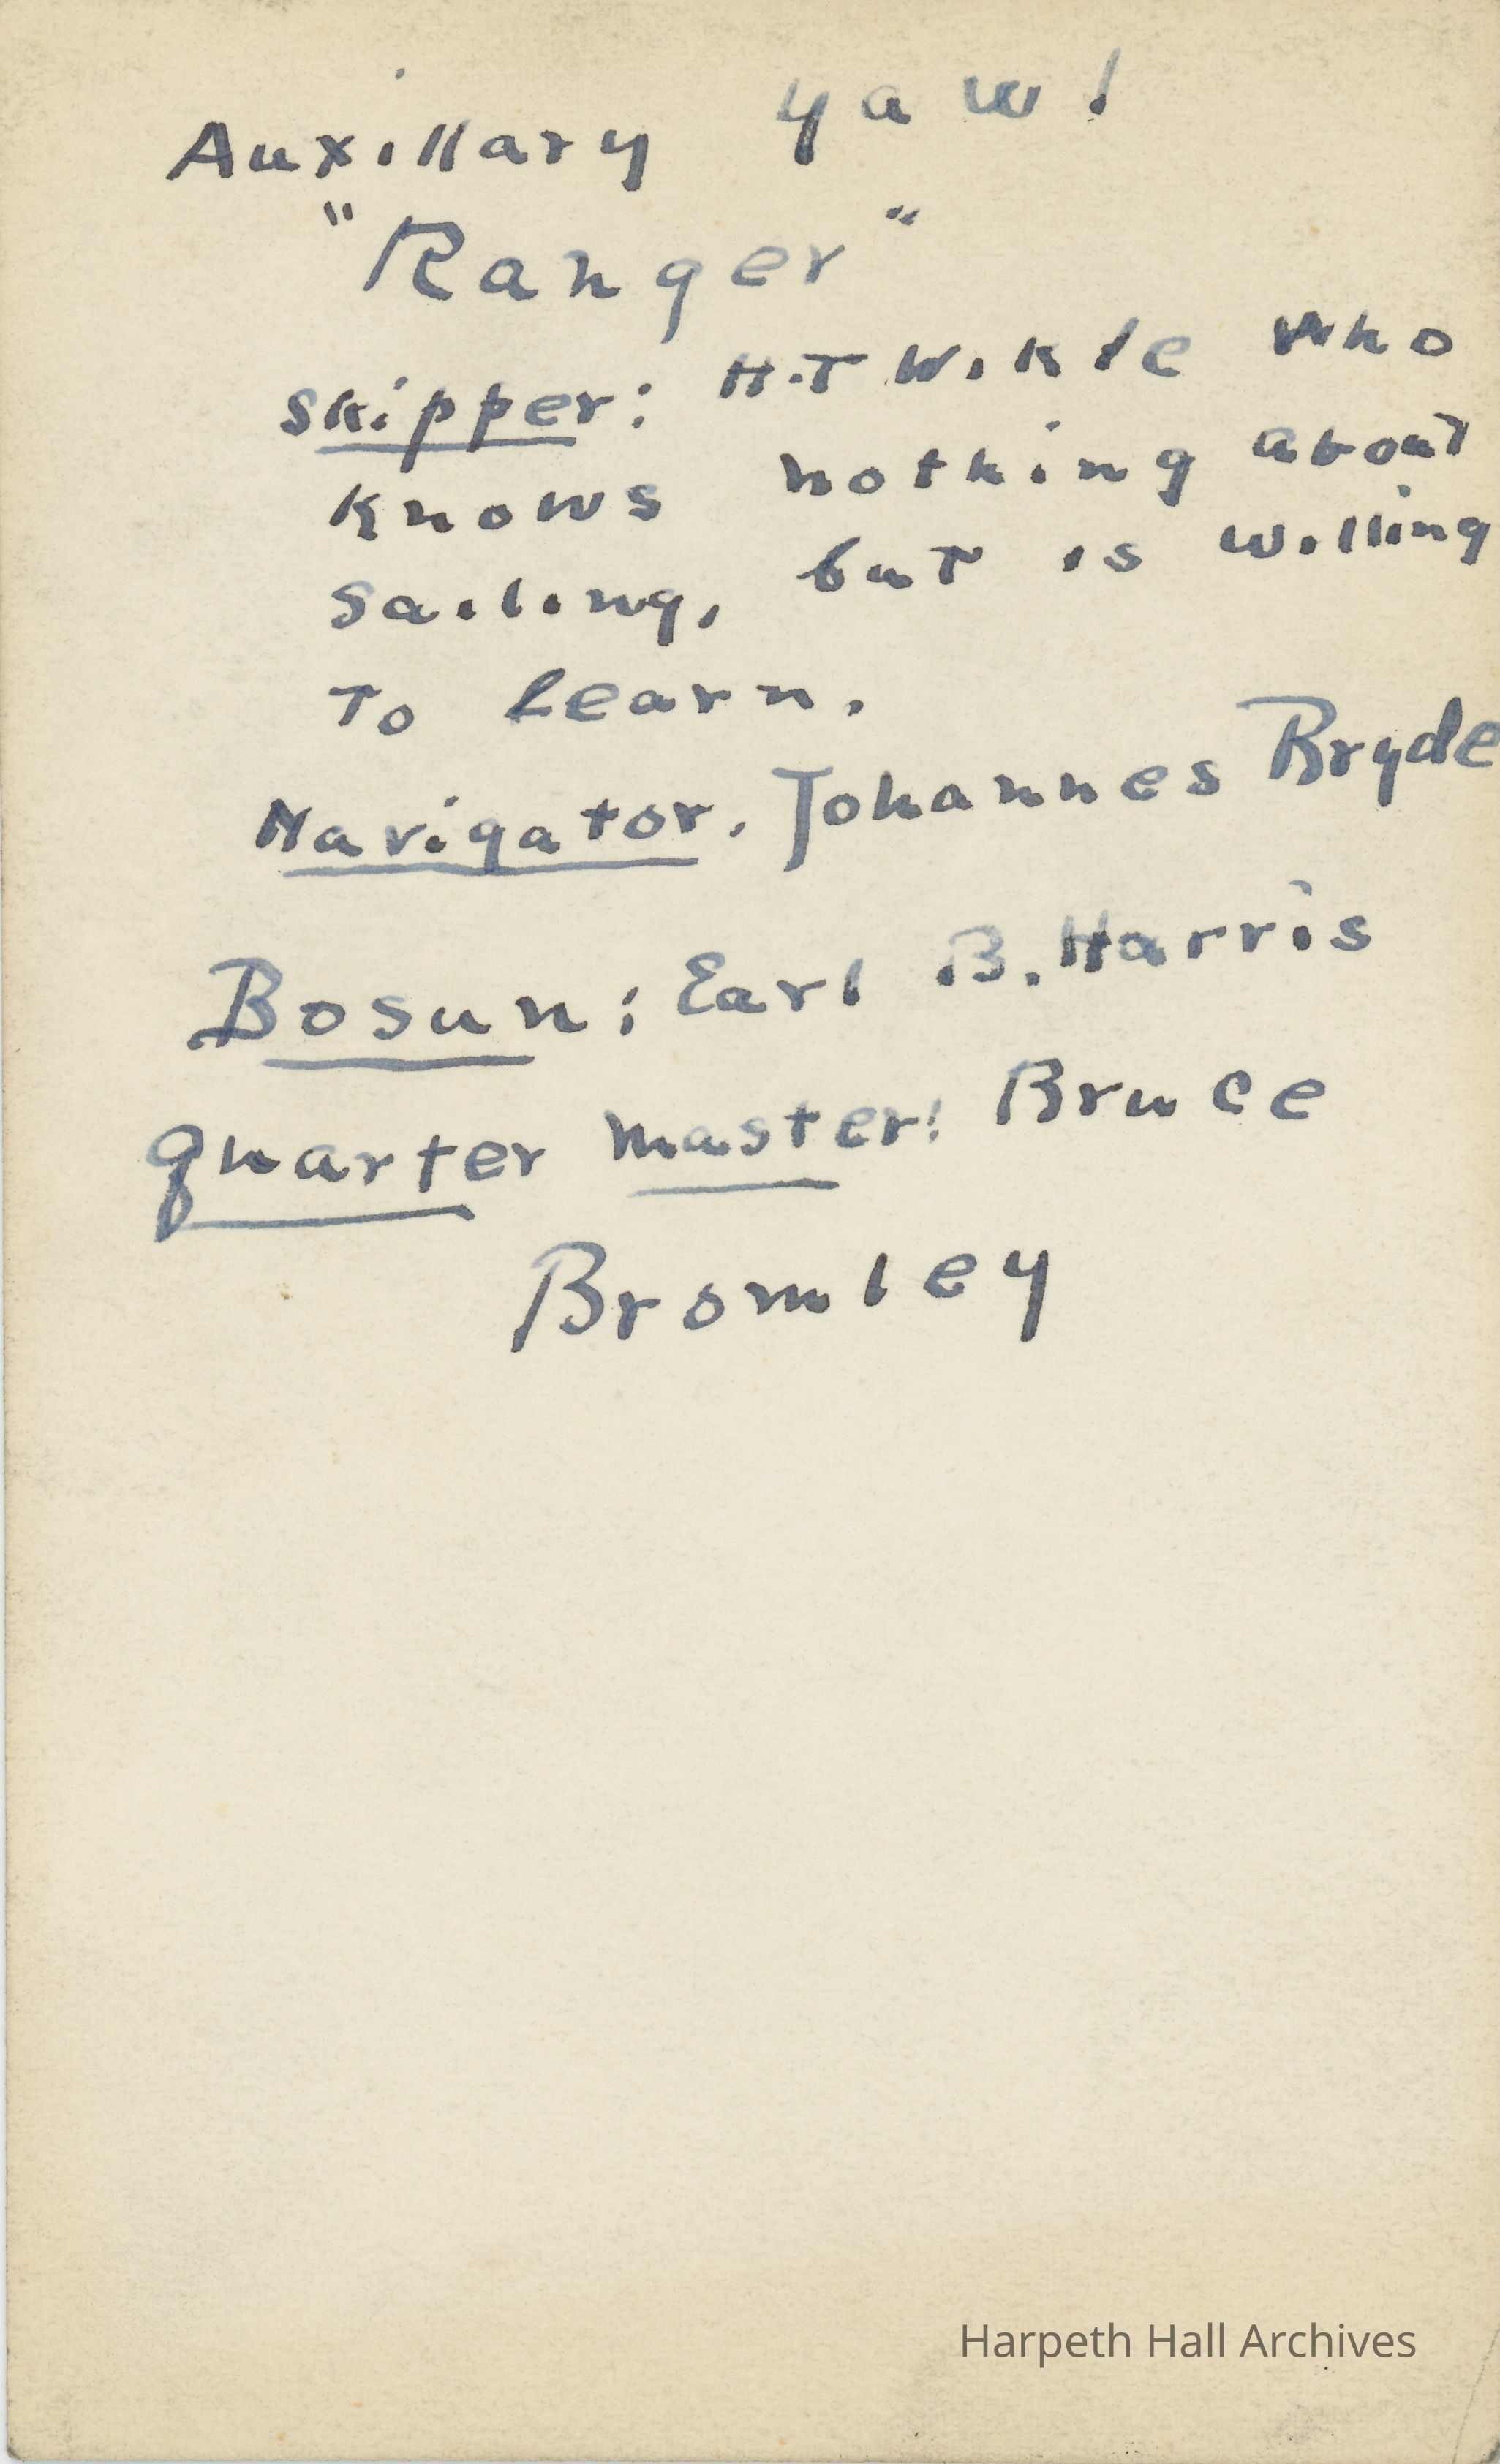 Auxillary yawl
"Ranger"
Skipper: H.T Wikle who
knows nothing about
sailing, but is willing
To learn.
Navigator. Johannes Bryde
Bosun: Earl B. Harris
Quarter Master: Bruce
Bromley
Harpeth Hall Archives